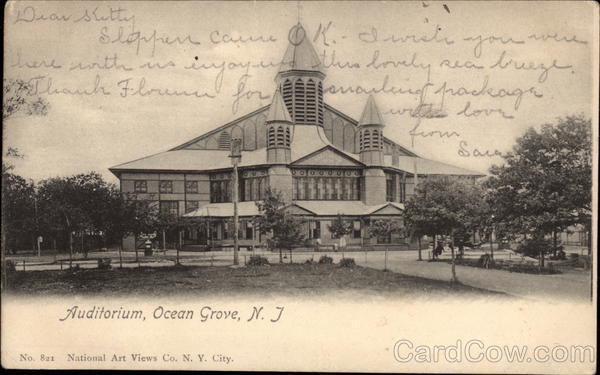 Dear Kitty
Slippers came O K - I wish you were
here with us enjoying this lovely sea breeze
Thank Florence for mailing package
with love
from
Sara
Auditorium, Ocean Grove, N. J
No. 821 National Art Views Co. N. Y. City.
CardCow.com